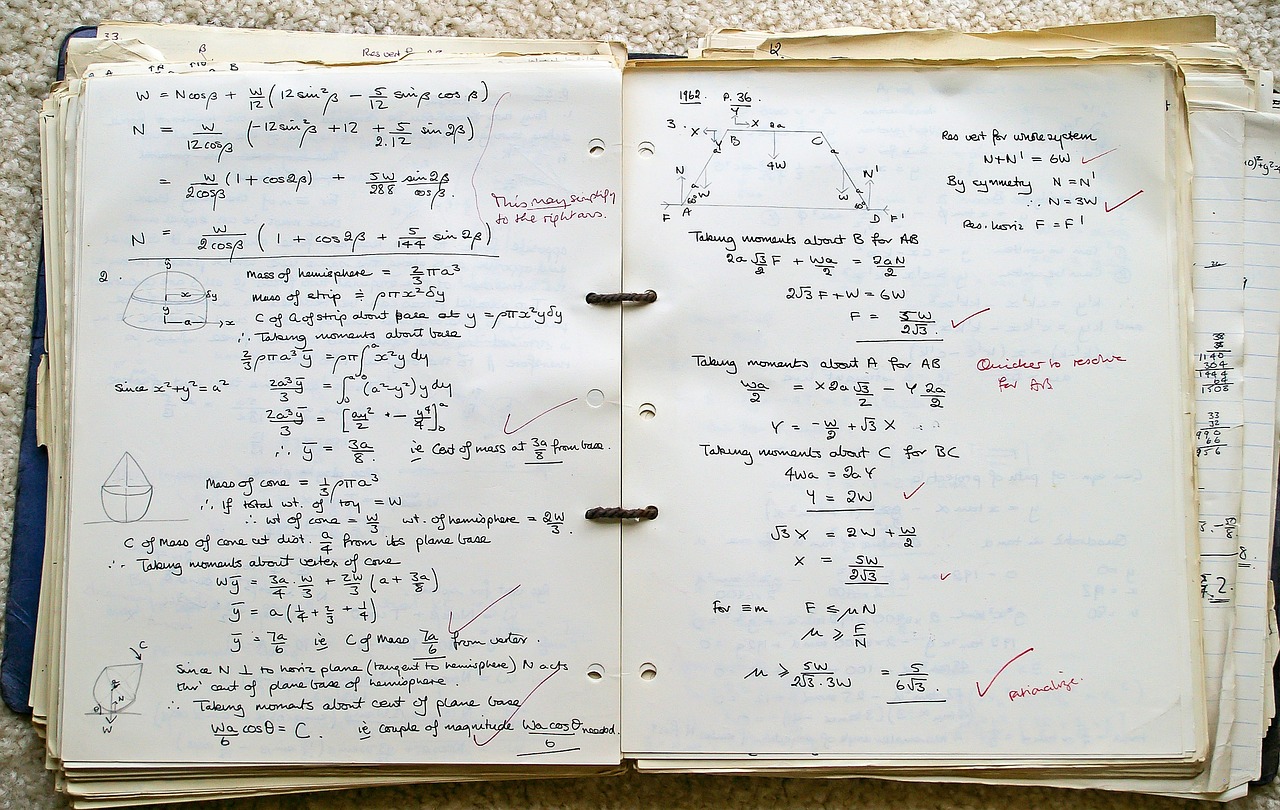 33.
β
Res vert
B
W = Ncosβ + W/12 (12sin²β − 5/12 sinβ cosβ)
N = W/12cosβ (−12sin²β + 12 + 5/2.12 sin2β)
= W/2cosβ (1 + cos2β) + 5W/288 sin2β/cosβ.
This may simplify
to the right ans.
N = W/2cosβ (1 + cos2β + 5/144 sin2β)
2.
y
x δy
y
a x
Mass of hemisphere = 2/3 πa³
Mass of strip ≑ ρπx²δy
C of G of strip about base at y = ρπx²yδy
∴ Taking moments about base
2/3 ρπa³ȳ = ρπ∫₀ᵃ x²y dy
Since x²+y² = a² 2a³ȳ/3 = ∫₀ᵃ (a²−y²) y dy
2a³ȳ/3 = [ay²/2 − y⁴/4]₀ᵃ
∴ ȳ = 3a/8 ie Cent of mass at 3a/8 from base.
Mass of cone = 1/3 ρπa³
∴ If total wt. of toy = W
∴ wt of cone = W/3 wt. of hemisphere = 2W/3.
C of Mass of cone at dist. a/4 from its plane base
∴ Taking moments about vertex of cone
Wȳ = 3a/4 . W/3 + 2W/3 (a + 3a/8)
ȳ = a(1/4 + 2/3 + 1/4)
ȳ = 7a/6 ie C of Mass 7a/6 from vertex.
C
θ N
W
Since N ⊥ to horiz plane (tangent to hemisphere) N acts
thro' cent of plane base of hemisphere.
∴ Taking moments about cent of plane base
Wa/6 cosθ = C. ie couple of magnitude Wa cosθ/6 needed.
12.
1962. P. 36.
Y
3. X X 2a
Y B C
a 4W a
N N'
a W W a
60° 60°
F A D F'
Res vert for whole system
N+N' = 6W
By symmetry N = N'
∴ N = 3W
Res. horiz F = F'
Taking moments about B for AB
2a√3/2 F + Wa/2 = 2aN/2
2√3 F + W = 6W
F = 5W/2√3.
Taking moments about A for AB
Quicker to resolve
for AB
Wa/2 = X2a√3/2 − Y 2a/2
Y = −W/2 + √3 X
Taking moments about C for BC
4Wa = 2aY
Y = 2W
√3 X = 2W + W/2
X = 5W/2√3
For ≡m F ≤ μN
μ ≥ F/N
μ ≥ 5W/2√3.3W = 5/6√3.
rationalize.
38
38
1140
304
1444
64
1508
33
32
990
66
956